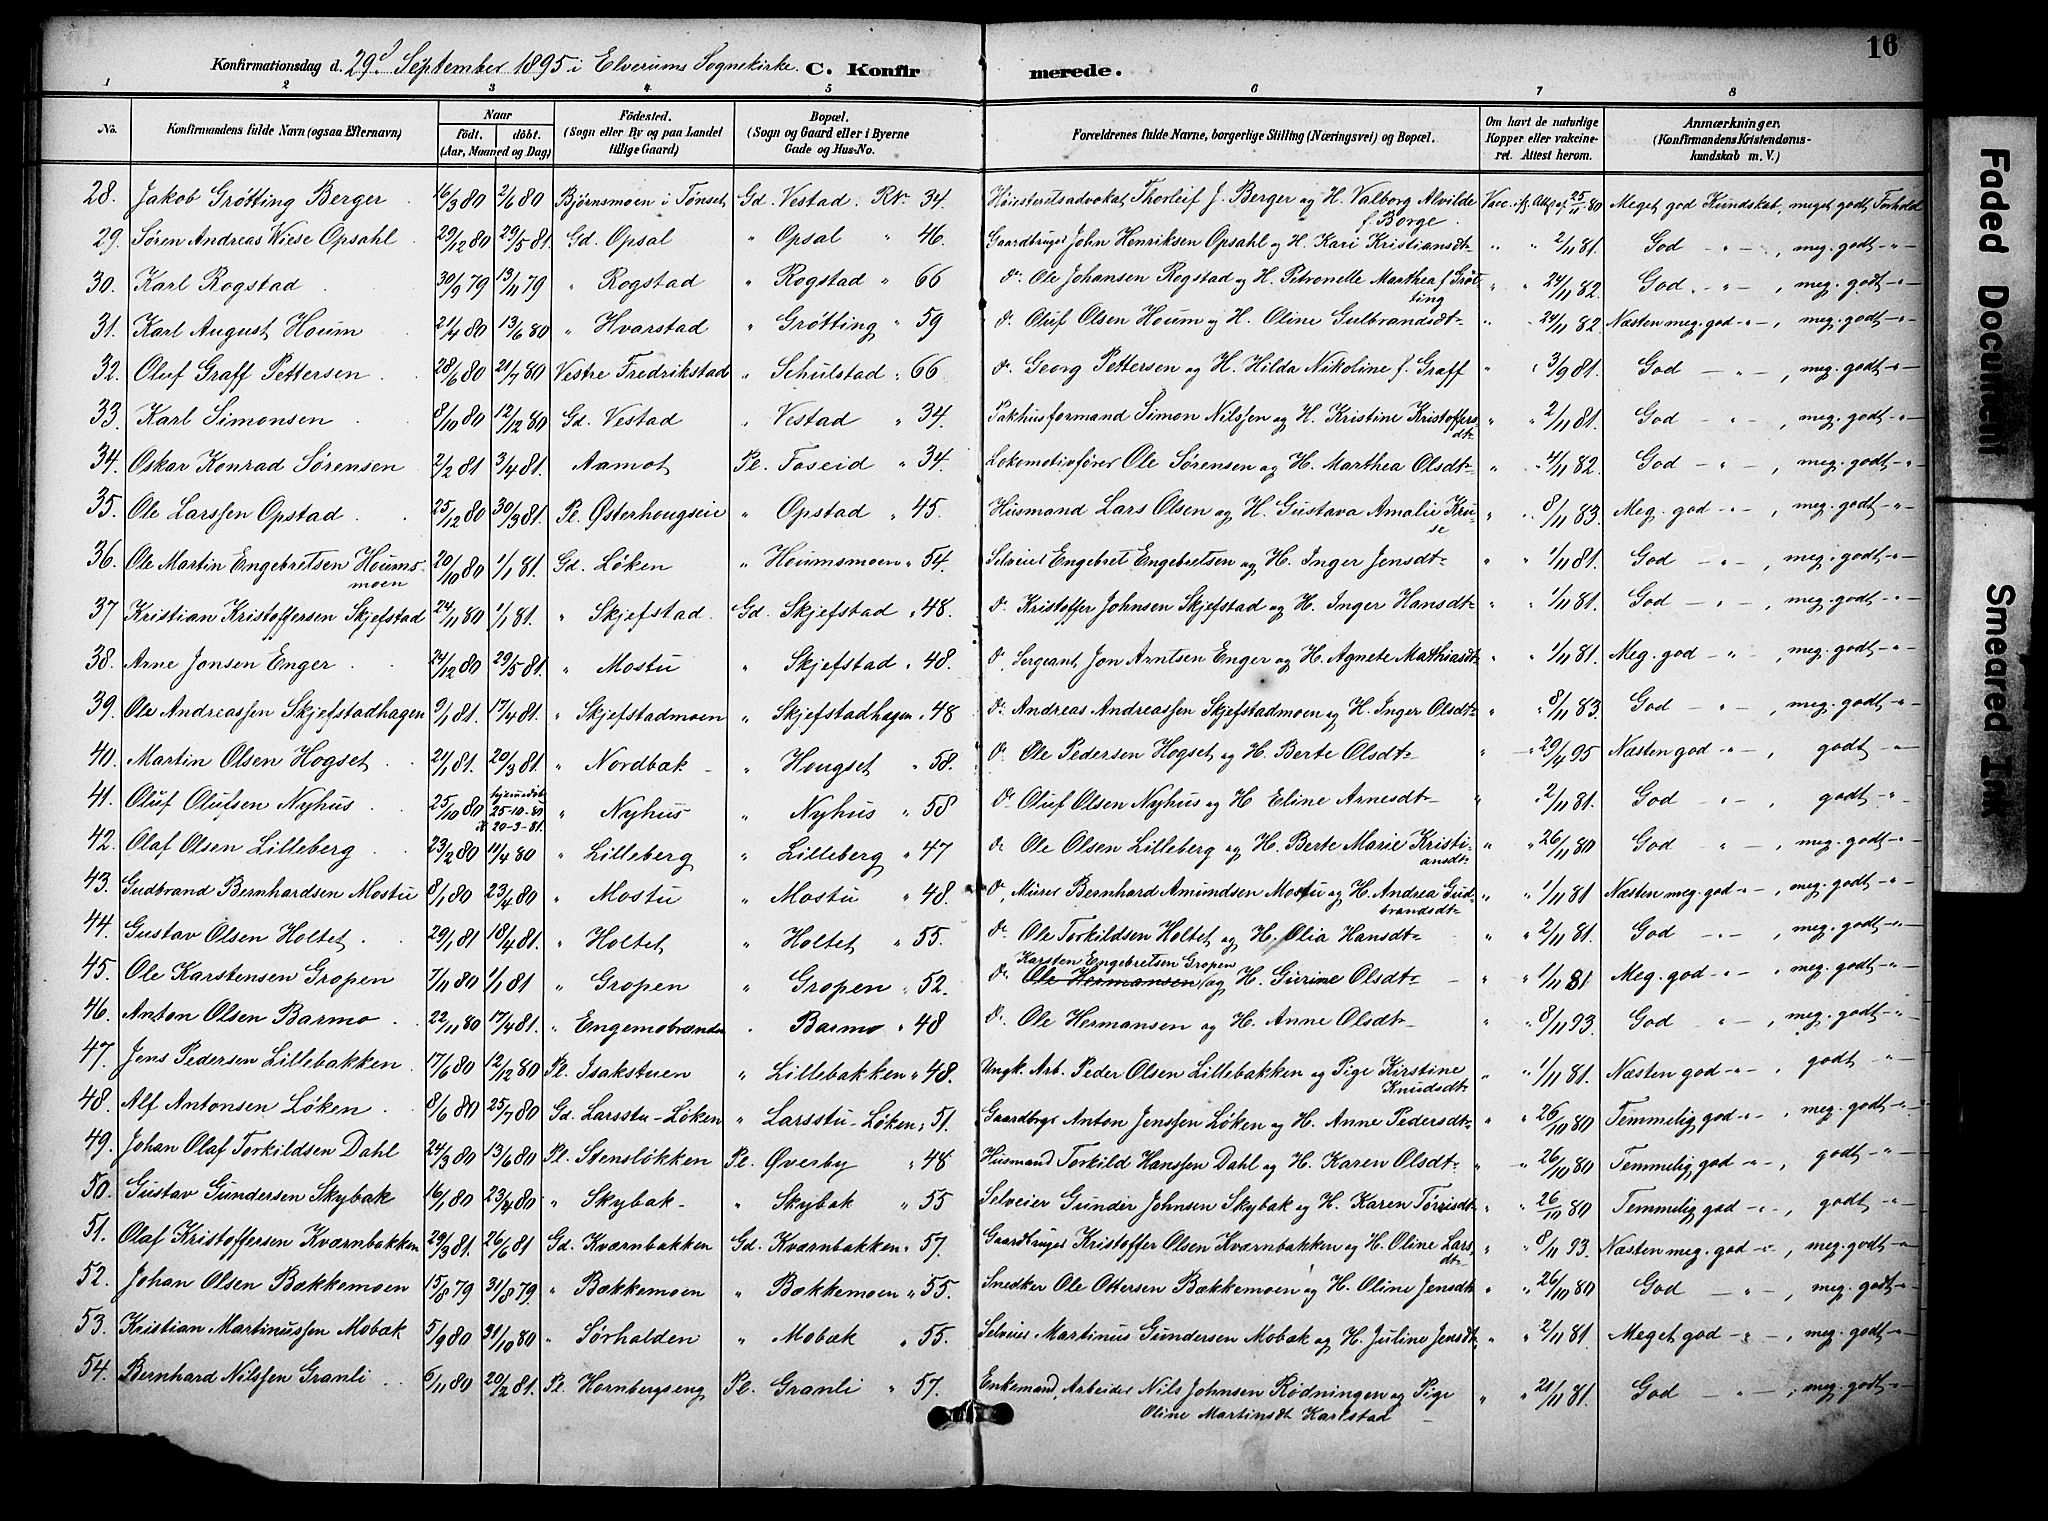 16
Konfirmationsdag d. 29d September 1895 i Elverums Sognekirke. C. Konfirmerede.
1 2 3 4 5 6 7 8
No. Konfirmandens fulde Navn (ogsaa Efternavn) Naar Födt. döbt. (Aar, Maaned og Dag) Födested. (Sogn eller By og paa Landet tillige Gaard) Bopæl. (Sogn og Gaard eller i Byerne Gade og Hus-No. Forældrenes fulde Navne, borgerlige Stilling (Næringsvei) og Bopæl. Om havt de naturlige Kopper eller vakcineret. Attest herom. Anmærkninger. (Konfirmandens Kristendomskundskab m. V.)
28. Jakob Grøtting Berger 16/3 80 2/6 80 Bjørnsmoen i Tønset Gd. Vestad. RN. 34. Høiesteretsadvokat Thorleif J. Berger og H. Valborg Alvilde f. Borge. Vacc. 25/11 80 Meget god Kundskab, meget godt Forhold
29. Søren Andreas Wiese Opsahl 29/12 80 29/5 81. Gd. Opsal " Opsal " 46. Gaardbruger John Henriksen Opsahl og H. Kari Kristiansdt- " " 2/11 81. God - " -, meg. godt -"-
30. Karl Rogstad 30/9 79 13/11 79 " Rogstad " Rogstad " 66 do. Ole Johansen Rogstad og H. Petronelle Marthea f. Grøtting " " 24/11 82. God. - " -, meg. godt -"-
31. Karl August Houm 21/4 80 13/6 80 " Hvarstad " Grøtting " 59 do. Oluf Olsen Houm og H. Oline Gulbrandsdt- " " 24/11 82. Næsten meg. god -"-, meg. godt -"-
32. Oluf Graff Pettersen 28/6 80 21/7 80 Vestre Fredrikstad " Schulstad " 66. do. Georg Pettersen og H. Hilda Nikoline f. Graff " " 3/9 81. God - " -, meg. godt -"-
33. Karl Simonsen 8/10 80 12/12 80 Gd. Vestad " Vestad " 34. Pakhusformand Simon Nilssen og H. Kristine Kristoffersdt- " " 2/11 81. God - " -, meg. godt -"-
34. Oskar Konrad Sørensen 2/2 81 3/4 81. Aamot Pl. Foseid " 34. Lokomotivfører Ole Sørensen og H. Marthea Olsdt- " " 4/11 82. God - " -, meg. godt -"-
35. Ole Larssen Opstad 25/12 80 30/3 81. Pl. Østerhougseie " Opstad " 45. Husmand Lars Olsen og H. Gustava Amalie Kruse " " 8/11 83. Meg. god -"-, meg. godt -"-
36. Ole Martin Engebretsen Houmsmoen 20/10 80 1/1 81. Gd. Løken " Houmsmoen " 54. Selveier Engebret Engebretsen og H. Inger Jensdt- " " 1/11 81. God - " -, meg. godt -"-
37 Kristian Kristoffersen Skjefstad 24/11 80 1/1 81. " Skjefstad. Gd. Skjefstad " 48. do. Kristoffer Johnsen Skjefstad og H. Inger Hansdt- " " 1/11 81. God - " -, meg. godt -"-
38. Arne Jonsen Enger 24/12 80 29/5 81. " Mostu " Skjefstad " 48. do. Sergeant Jon Arntsen Enger og H. Agnete Mathiasdt- " " 1/11 81. Meg. god -"-, meg. godt -"-
39. Ole Andreassen Skjefstadhagen 9/1 81. 17/4 81. " Skjefstadmoen " Skjefstadhagen " 48 do. Andreas Andreassen Skjefstadmoen og H. Inger Olsdt- " " 8/11 83. God - " -, meg. godt -"-
40. Martin Olsen Hogset 24/1 81. 20/3 81. " Nordbak " Hougset " 58. do. Ole Pedersen Hogset og H. Berte Olsdt- " " 29/4 95 Næsten god -"-, godt -"-
41. Oluf Olufsen Nyhus 25/10 80 hjemmedøbt 25-10-80 20-3-81. " Nyhus " Nyhus " 58 do. Oluf Olsen Nyhus og H. Eline Arnesdt- " " 2/11 81. God - " -, godt -"-
42. Olaf Olsen Lilleberg 23/2 80 11/4 80 " Lilleberg " Lilleberg " 47 do. Ole Olsen Lilleberg og H. Berte Marie Kristiansdt- " " 26/11 80 God - " -, meg. godt -"-
43. Gudbrand Bernhardsen Mostu 8/1 80 23/4 80 " Mostu " Mostu " 48. do. Murer Bernhard Amundsen Mostu og H. Andrea Gudbrandsdt- " " 1/11 81 Næsten meg. god -"-, meg. godt -"-
44. Gustav Olsen Holtet 29/1 81 18/4 81. " Holtet " Holtet " 55. do. Ole Torkildsen Holtet og H. Olia Hansdt- " " 2/11 81. God - " -, meg. godt -"-
45. Ole Karstensen Gropen 7/11 80 1/1 81 " Gropen " Gropen " 52. do. Karsten Engebretsen Gropen Ole Hermansen og H. Gurine Olsdt- " " 1/11 81 Meg. god -"-, meg. godt -"-
46. Anton Olsen Barmo 22/11 80 17/4 81. " Engemobrænden " Barmo " 48 do. Ole Hermansen og H. Anne Olsdt- " " 8/11 93. God - " -, meg. godt -"-
47. Jens Pedersen Lillebakken 17/6 80 12/12 80 Pl. Isakstuen " Lillebakken " 48. Ungk. Arb. Peder Olsen Lillebakken og Pige Kirstine Knudsdt- " " 1/11 81. Næsten god -"-, godt -"-
48. Alf Antonsen Løken 8/6 80 25/7 80 Gd. Larsstu-Løken " Larsstu-Løken " 51. Gaardbrgr Anton Jenssen Løken og H. Anne Pedersdt- " " 26/10 80 Temmelig god -"-, meg. godt -"-
49. Johan Olaf Torkildsen Dahl 24/3 80 13/6 80 Pl. Stensløkken Pl. Øverby " 48 Husmand Torkild Hanssen Dahl og H. Karen Olsdt- " " 26/10 80 Temmelig god -"-, godt -"-
50. Gustav Gundersen Skybak 16/1 80 23/4 80 " Skybak " Skybak " 55 Selveier Gunder Johnsen Skybak og H. Karen Tørrisdt- " " 26/10 80 Temmelig god -"-, godt -"-
51. Olaf Kristoffersen Kværnbakken 29/3 81. 26/6 81 Gd. Kværnbakken Gd. Kværnbakken " 57. Gaardbruger Kristoffer Olsen Kværnbakken og H. Oline Larsdt- " " 8/11 93. Næsten meg. god -"-, meg. godt -"-
52. Johan Olsen Bækkemoen 15/8 79 31/8 79. " Bækkemoen " Bækkemoen " 55. Snedker Ole Ottersen Bækkemoen og H. Oline Jensdt " " 26/10 80 God - " -, meg. godt -"-
53. Kristian Martinussen Mobæk 5/9 80 31/10 80 " Sørhalden " Mobæk " 55. Selveier Martinus Gundersen Mobæk og H. Juline Jensdt- " " 2/11 81. Meget god -"-, meg. godt -"-
54. Bernhard Nilssen Granli 6/11 80 20/2 81. Pl. Hornbergseng Pl. Granli " 57. Enkemand, Arbeider Nils Johnsen Rødningen og Pige Oline Martinsdt Karlstad " " 21/11 81. God - " -, meg. godt -"-
Faded Document
Smeared Ink